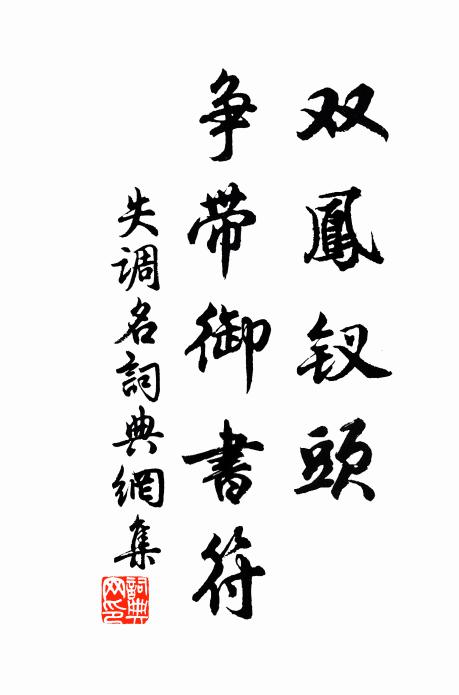 双鳳钗頭
争带御書符
失调名詞典網集
詞典网印